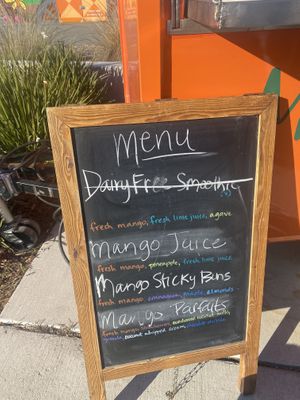 Menu
Dairy Free Smoothie
fresh mango, fresh lime juice, agave
Mango Juice
fresh mango, pineapple, fresh lime juice
Mango Sticky Buns
fresh mango, cinnamon, maple, almonds
Mango Parfaits
fresh mango,
coconut whipped cream,